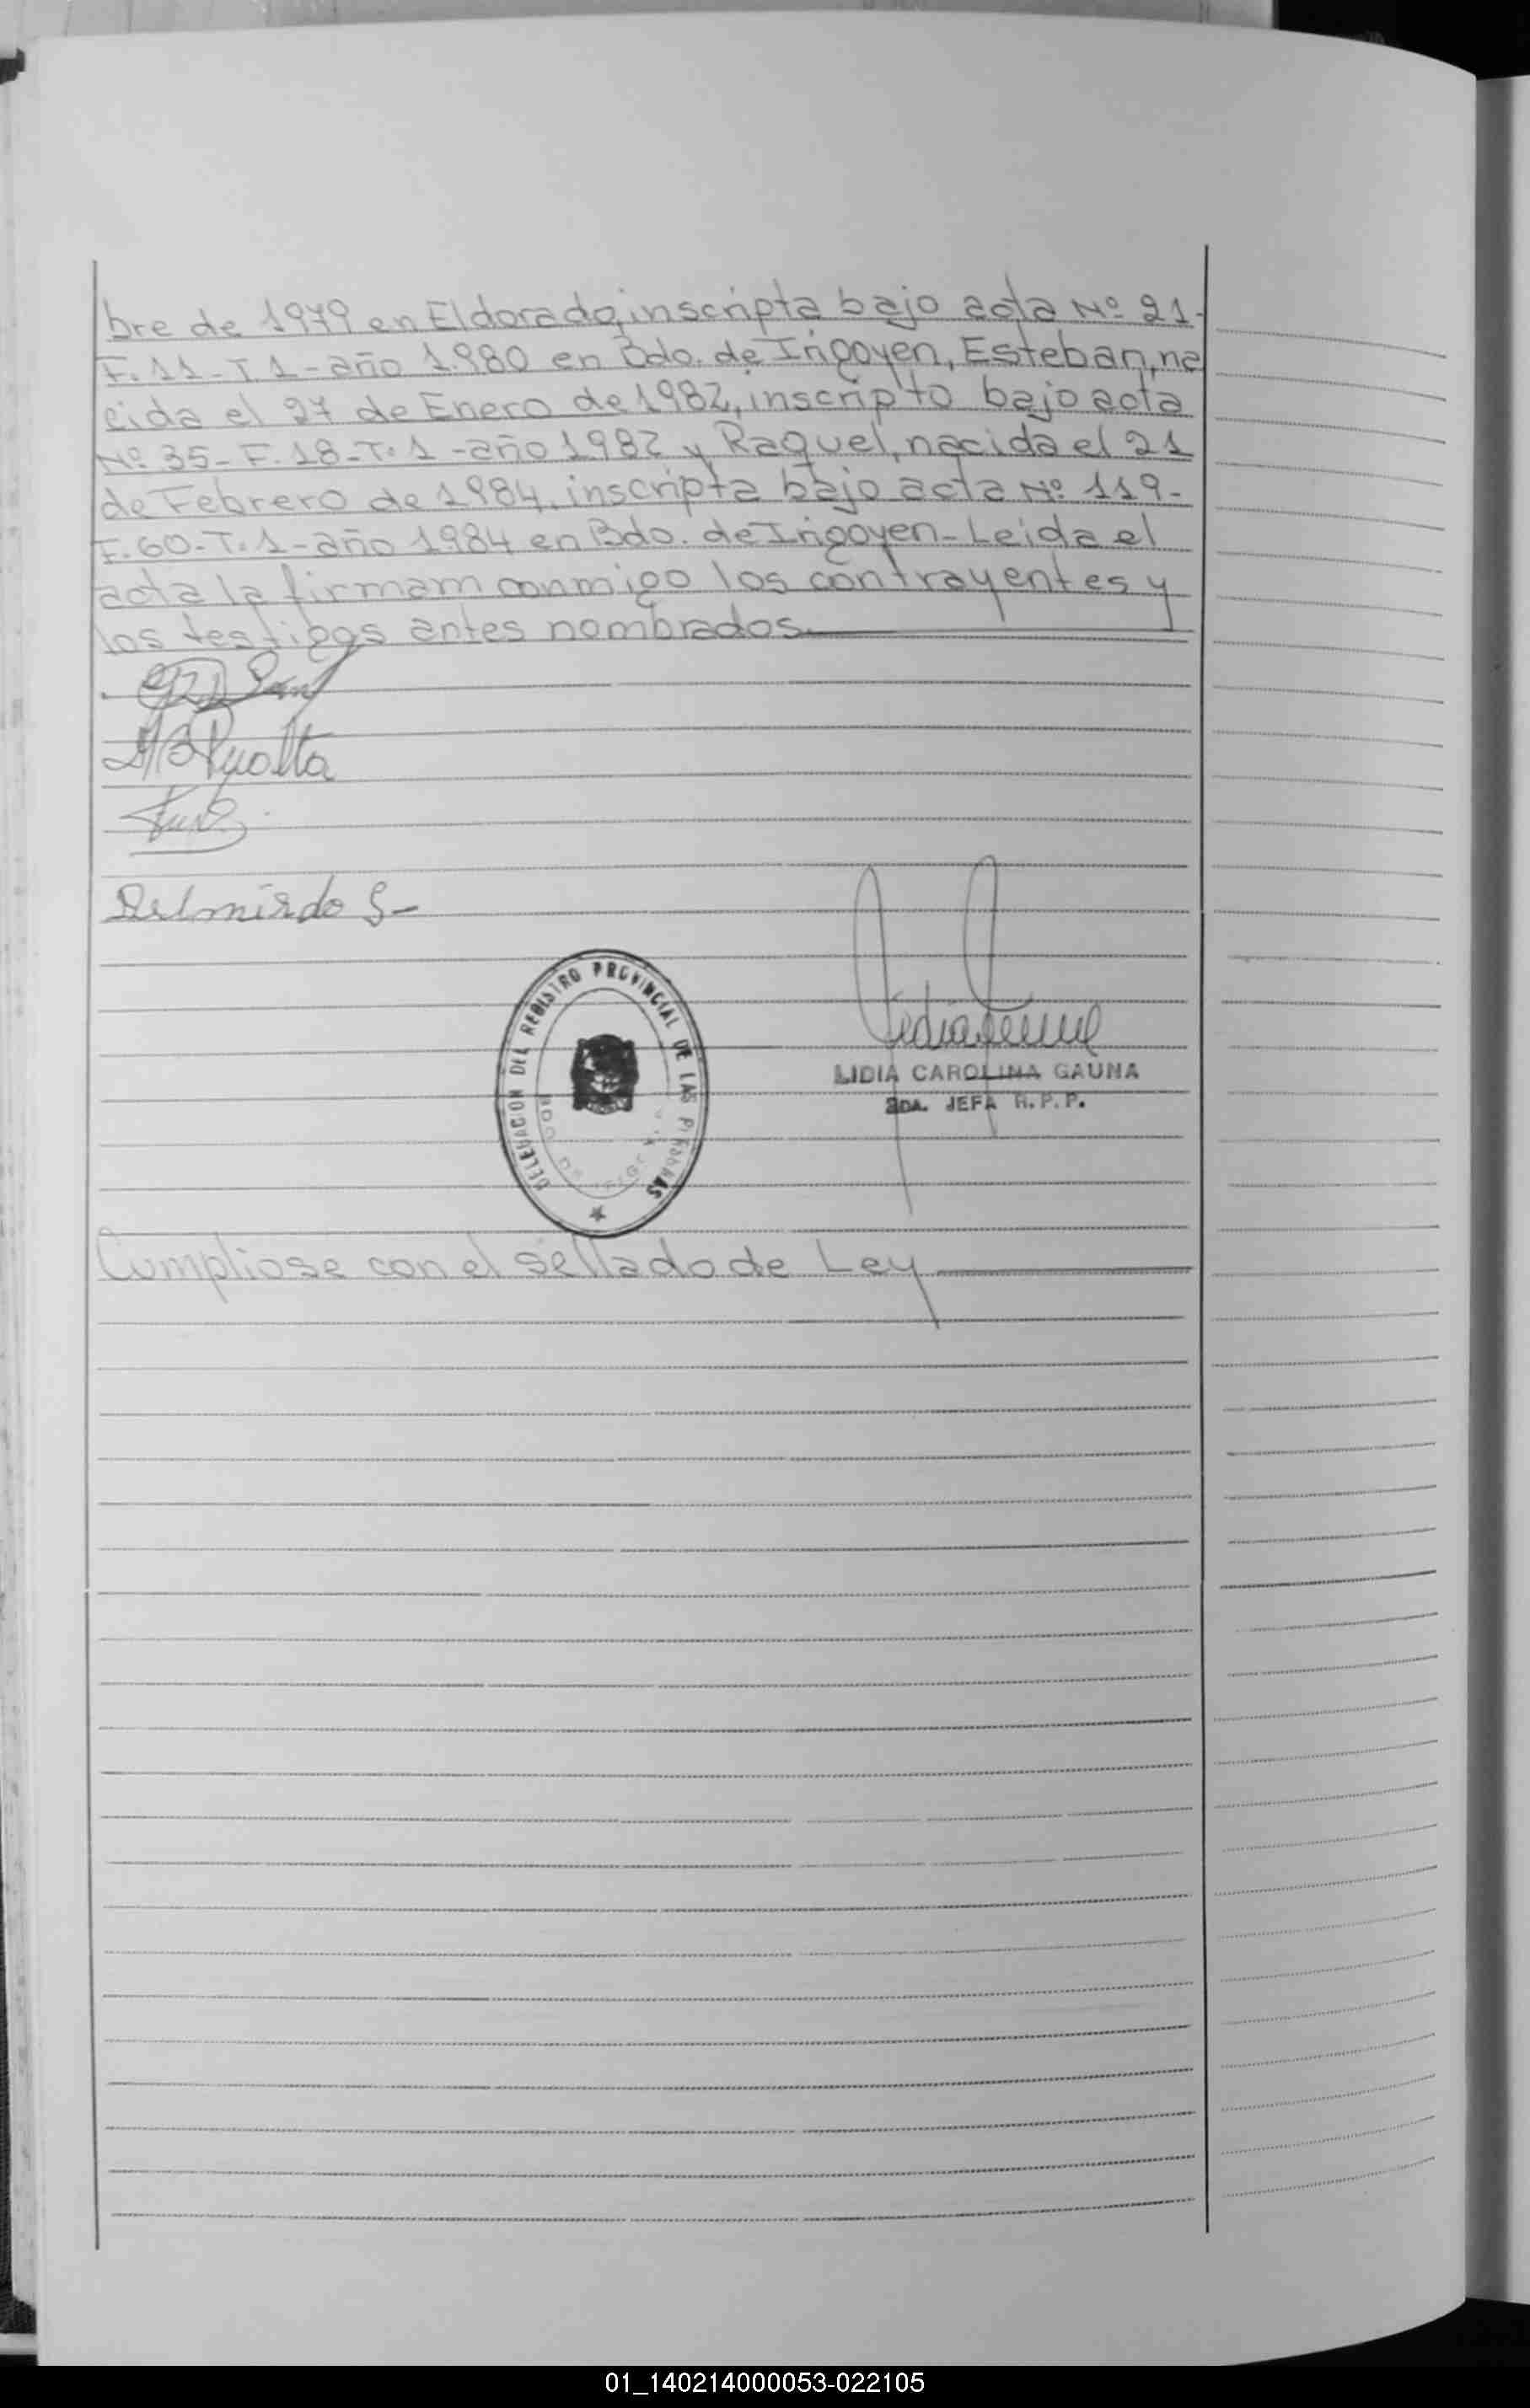 bre de 1979 en Eldorado, inscripta bajo acta Nº 21-
F. 11 - T. 1 - año 1.980 en Bdo. de Irigoyen, Esteban, na
cida el 27 de Enero de 1982, inscripto bajo acta
Nº 35 - F. 18 - T. 1 - año 1982 y Raquel, nacida el 21
de Febrero de 1984, inscripta bajo acta Nº 119-
F. 60 - T. 1 - año 1984 en Bdo. de Irigoyen - Leida el
acta la firmam conmigo los contrayentes y
los testigos antes nombrados.
DELEGACION DEL REGISTRO PROVINCIAL DE LAS PERSONAS
BDO DE
LIDIA CAROLINA GAUNA
2DA. JEFA R.P.P.
Cumpliose con el sellado de Ley
01_140214000053-022105